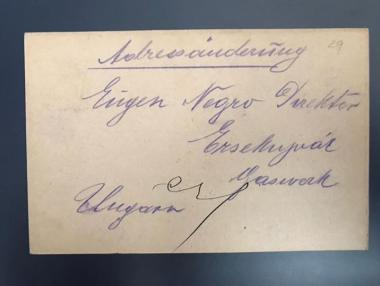 29
Adressänderung
Eugen Negro Direktor
Ersekujvár
Gaswerk
Ungarn